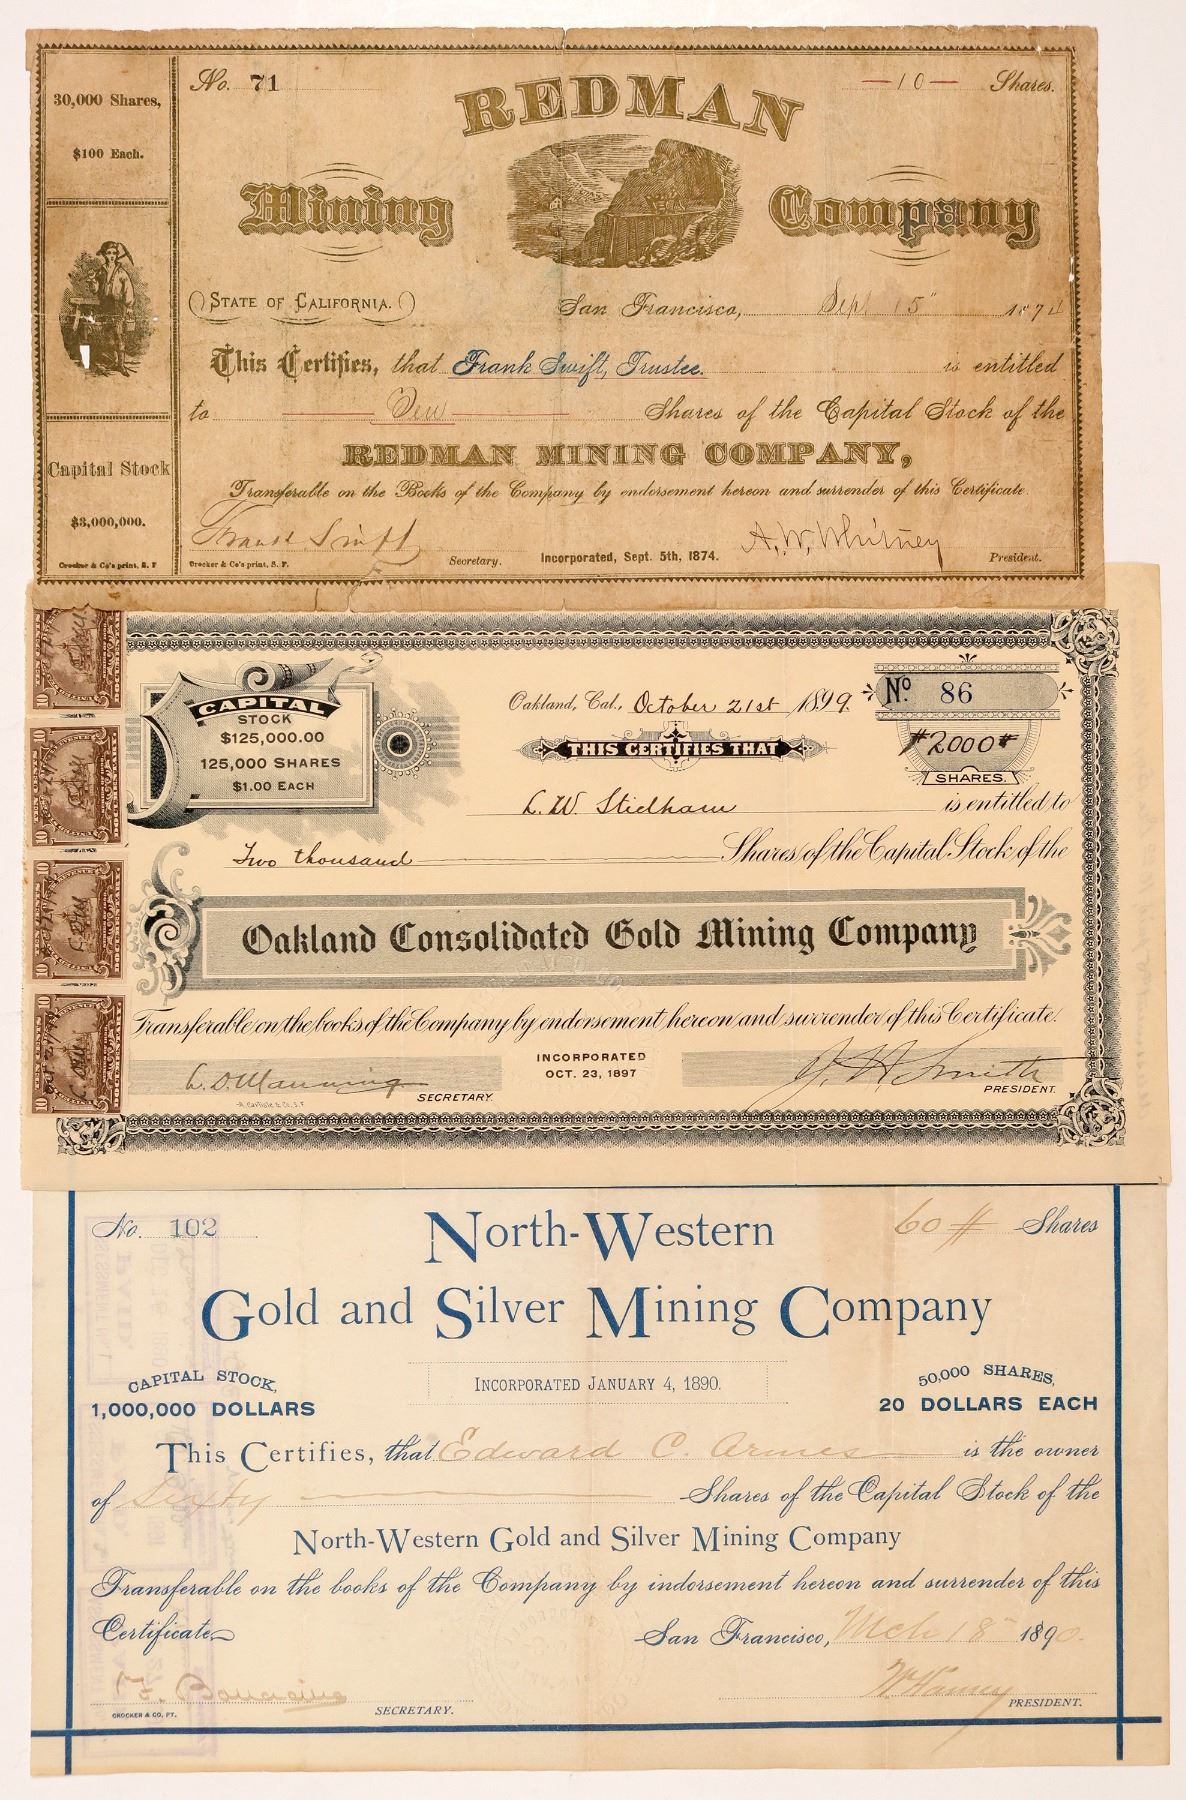 No. 71
—10— Shares.
REDMAN
Mining Company
30,000 Shares,
$100 Each.
Capital Stock
$3,000,000.
Crocker & Co's print, S. F
STATE OF CALIFORNIA.
San Francisco, Sept 15" 1874
This Certifies, that Frank Swift, Trustee. is entitled
to Ten Shares of the Capital Stock of the
REDMAN MINING COMPANY,
Transferable on the Books of the Company by endorsement hereon and surrender of this Certificate.
Frank Swift Secretary. Incorporated, Sept. 5th, 1874. A. W. Whitney President.
Crocker & Co's print, S. F.
CAPITAL
STOCK
$125,000.00
125,000 SHARES
$1.00 EACH
Oakland, Cal., October 21st 1899.
No. 86
#2000#
SHARES.
THIS CERTIFIES THAT
L. W. Stidham is entitled to
Two thousand Shares of the Capital Stock of the
Oakland Consolidated Gold Mining Company
Transferable on the books of the Company by endorsement hereon and surrender of this Certificate.
INCORPORATED
OCT. 23, 1897
L. D. Manning SECRETARY.
J. H. Smith PRESIDENT.
A. Carlisle & Co. S. F.
No. 102
60# Shares
North-Western
Gold and Silver Mining Company
INCORPORATED JANUARY 4, 1890.
CAPITAL STOCK,
1,000,000 DOLLARS
50,000 SHARES,
20 DOLLARS EACH
This Certifies, that Edward C. Armes is the owner
of Sixty Shares of the Capital Stock of the
North-Western Gold and Silver Mining Company
Transferable on the books of the Company by indorsement hereon and surrender of this
Certificate
San Francisco, Mch 18" 1890.
SECRETARY.
PRESIDENT.
CROCKER & CO. PT.